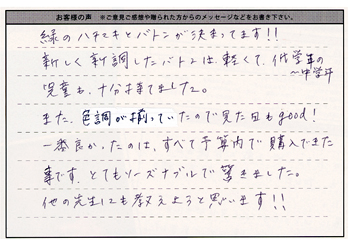 お客様の声 ※ご意見ご感想や贈られた方からのメッセージなどをお書き下さい。
緑のハチマキとバトンが決まってます!!
新しく新調したバトンは軽くて、低学年の
〜中学年
児童も、十分持てました。
また、色調が揃っていたので見た目もgood!
一番良かったのは、すべて予算内で購入できた
事です。とてもリーズナブルで驚きました。
他の先生にも教えようと思います!!